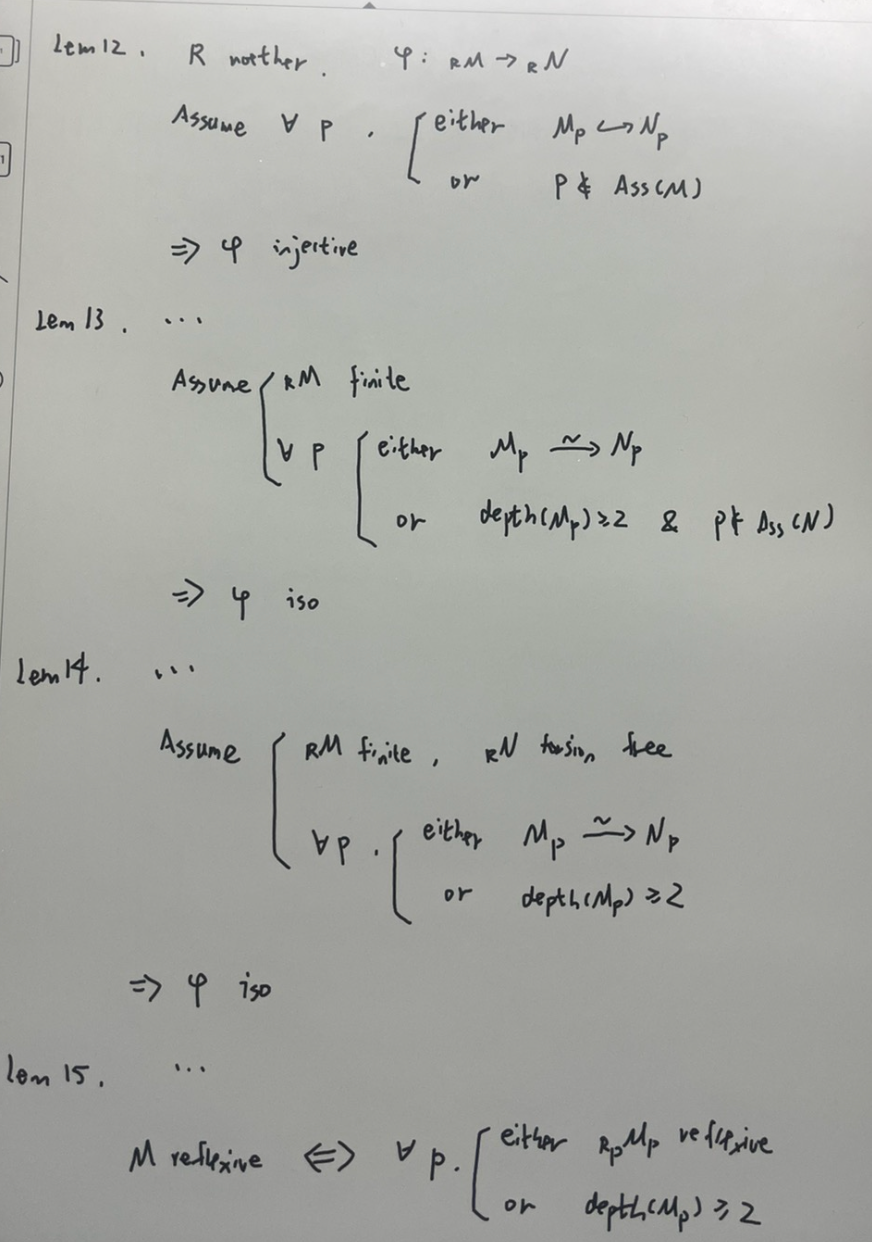 Lem 12. R noether. φ: RM → RN
Assume ∀ p. [ either Mp ↪ Np
or p ∉ Ass(M)
⇒ φ injective
Lem 13. ...
Assume { RM finite
∀ p [ either Mp ⥲ Np
or depth(Mp) ≥ 2 & p ∉ Ass(N)
⇒ φ iso
Lem 14. ...
Assume { RM finite, RN torsion free
∀ p. [ either Mp ⥲ Np
or depth(Mp) ≥ 2
⇒ φ iso
Lem 15. ...
M reflexive ⇔ ∀ p. [ either RpMp reflexive
or depth(Mp) ≥ 2